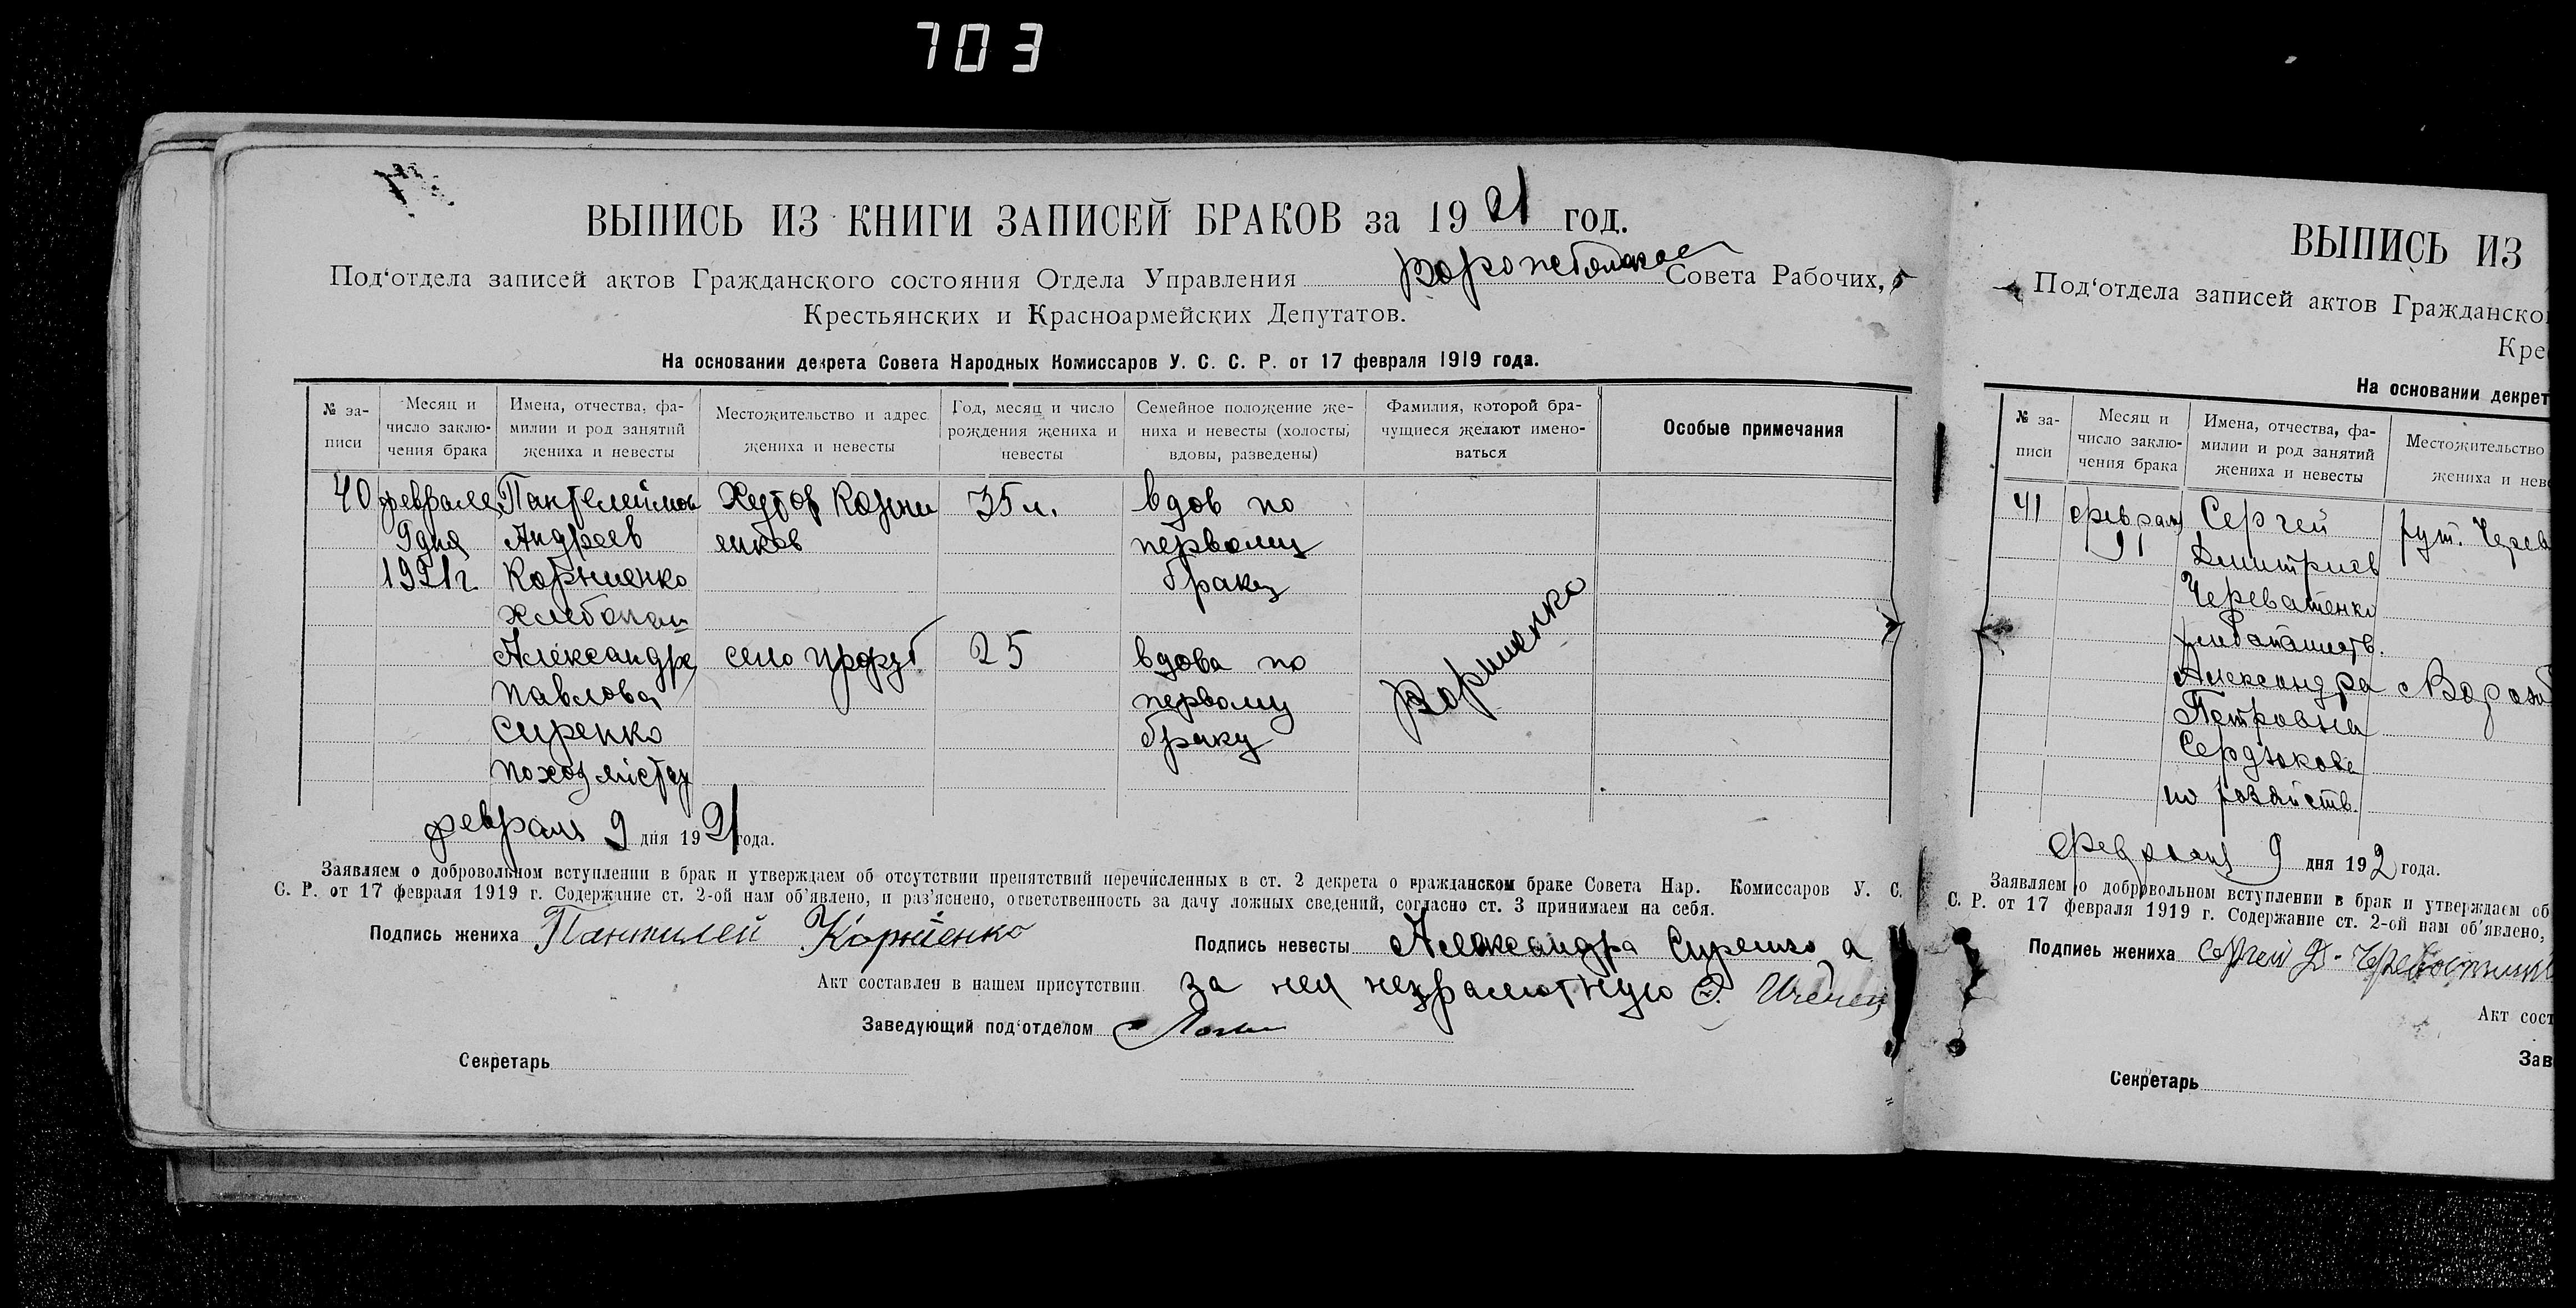 703
ВЫПИСЬ ИЗ КНИГИ ЗАПИСЕЙ БРАКОВ за 1921 год.
Под‘отдела записей актов Гражданского состояния Отдела Управления Совета Рабочих,
Крестьянских и Красноармейских Депутатов.
На основании декрета Совета Народных Комиссаров У. С. С. Р. от 17 февраля 1919 года.
№ за-
писи
Месяц и
число заклю-
чения брака
Имена, отчества, фа-
милии и род занятий
жениха и невесты
Местожительство и адрес
жениха и невесты
Год, месяц и число
рождения жениха и
невесты
Семейное положение же-
ниха и невесты (холосты,
вдовы, разведены)
Фамилия, которой бра-
чущиеся желают имено-
ваться
Особые примечания
40 февраля Пантелеймон Хутор 35 л. вдов по
9 дня Андреев первому
1921 г. Корниенко браку
Хлебопаш
Александра село 25 вдова по
Павлова первому
Сиренко браку
Корниенко
февраля 9 дня 1921 года.
Заявляем о добровольном вступлении в брак и утверждаем об отсутствии препятствий перечисленных в ст. 2 декрета о гражданском браке Совета Нар. Комиссаров У. С.
С. Р. от 17 февраля 1919 г. Содержание ст. 2-ой нам об‘явлено, и раз‘яснено, ответственность за дачу ложных сведений, согласно ст. 3 принимаем на себя.
Подпись жениха Пантилей Корниенко Подпись невесты Александра Сиренко а
Акт составлен в нашем присутствии за нея неграмотную
Заведующий под‘отделом
Секретарь
ВЫПИСЬ ИЗ
Под‘отдела записей актов Гражданско
Кре
На основании декрет
№ за-
писи
Месяц и
число заклю-
чения брака
Имена, отчества, фа-
милии и род занятий
жениха и невесты
Местожительство
жениха и нев
41 февраля Сергей хут. Черев
9 Димитриев
Череватенко
Александра
Петровна
Сердюкова
по хозяйств.
февраля 9 дня 192 года.
Заявляем о добровольном вступлении в брак и утверждаем об
С. Р. от 17 февраля 1919 г. Содержание ст. 2-ой нам об‘явлено,
Подпись жениха Сергей Д.
Акт сост
Зав
Секретарь